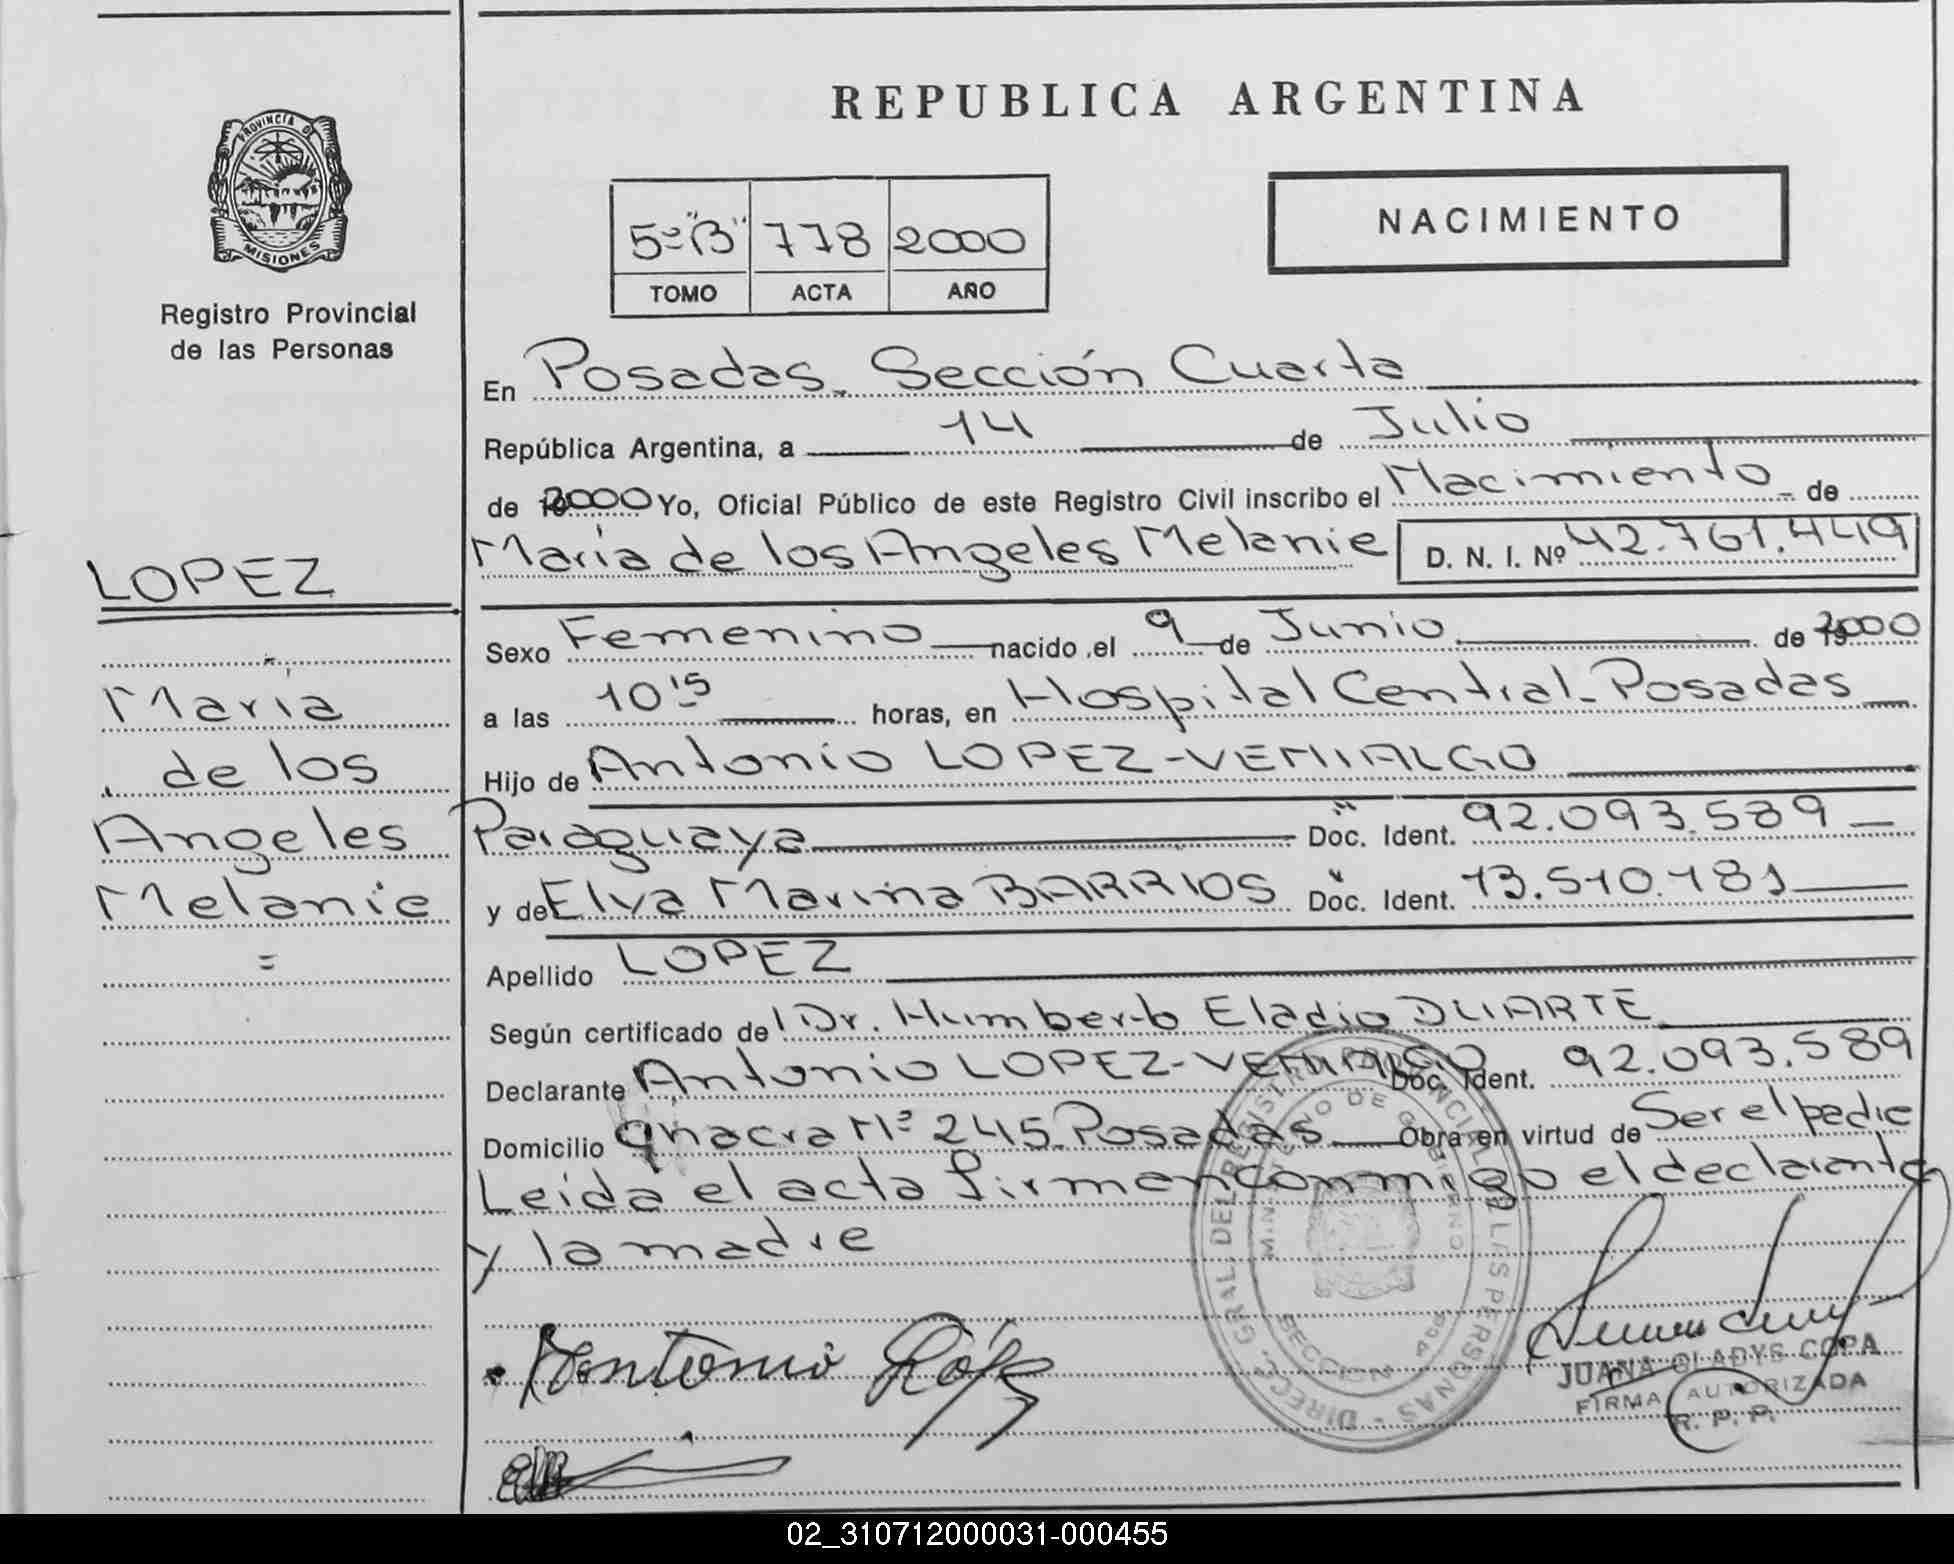 REPUBLICA ARGENTINA
PROVINCIA DE
MISIONES
Registro Provincial
de las Personas
5º "B" 778 2000
TOMO ACTA AÑO
NACIMIENTO
LOPEZ
María
de los
Angeles
Melanie
=
En Posadas - Sección Cuarta
República Argentina, a 14 de Julio
de 2000 Yo, Oficial Público de este Registro Civil inscribo el Nacimiento - de
María de los Angeles Melanie D. N. I. Nº 42.761.449
Sexo Femenino nacido el 9 de Junio de 2000
a las 10:15 horas, en Hospital Central - Posadas
Hijo de Antonio LOPEZ-VENIALGO
Paraguaya Doc. Ident. 92.093.589
y de Elva Marina BARRIOS Doc. Ident. 13.510.181
Apellido LOPEZ
Según certificado de Dr. Humberto Eladio DUARTE
Declarante Antonio LOPEZ-VENIALGO Doc. Ident. 92.093.589
Domicilio Nº 245 Posadas Obra en virtud de Ser el padre
Leída el acta firman conmigo el declarante
y la madre
Antonio López
DIRECC. GRAL. DEL REGISTRO PROVINCIAL DE LAS PERSONAS
MINISTERIO DE GOBIERNO
SECCION 4ta
JUANA GLADYS COPA
FIRMA AUTORIZADA
R. P. P.
02_310712000031-000455